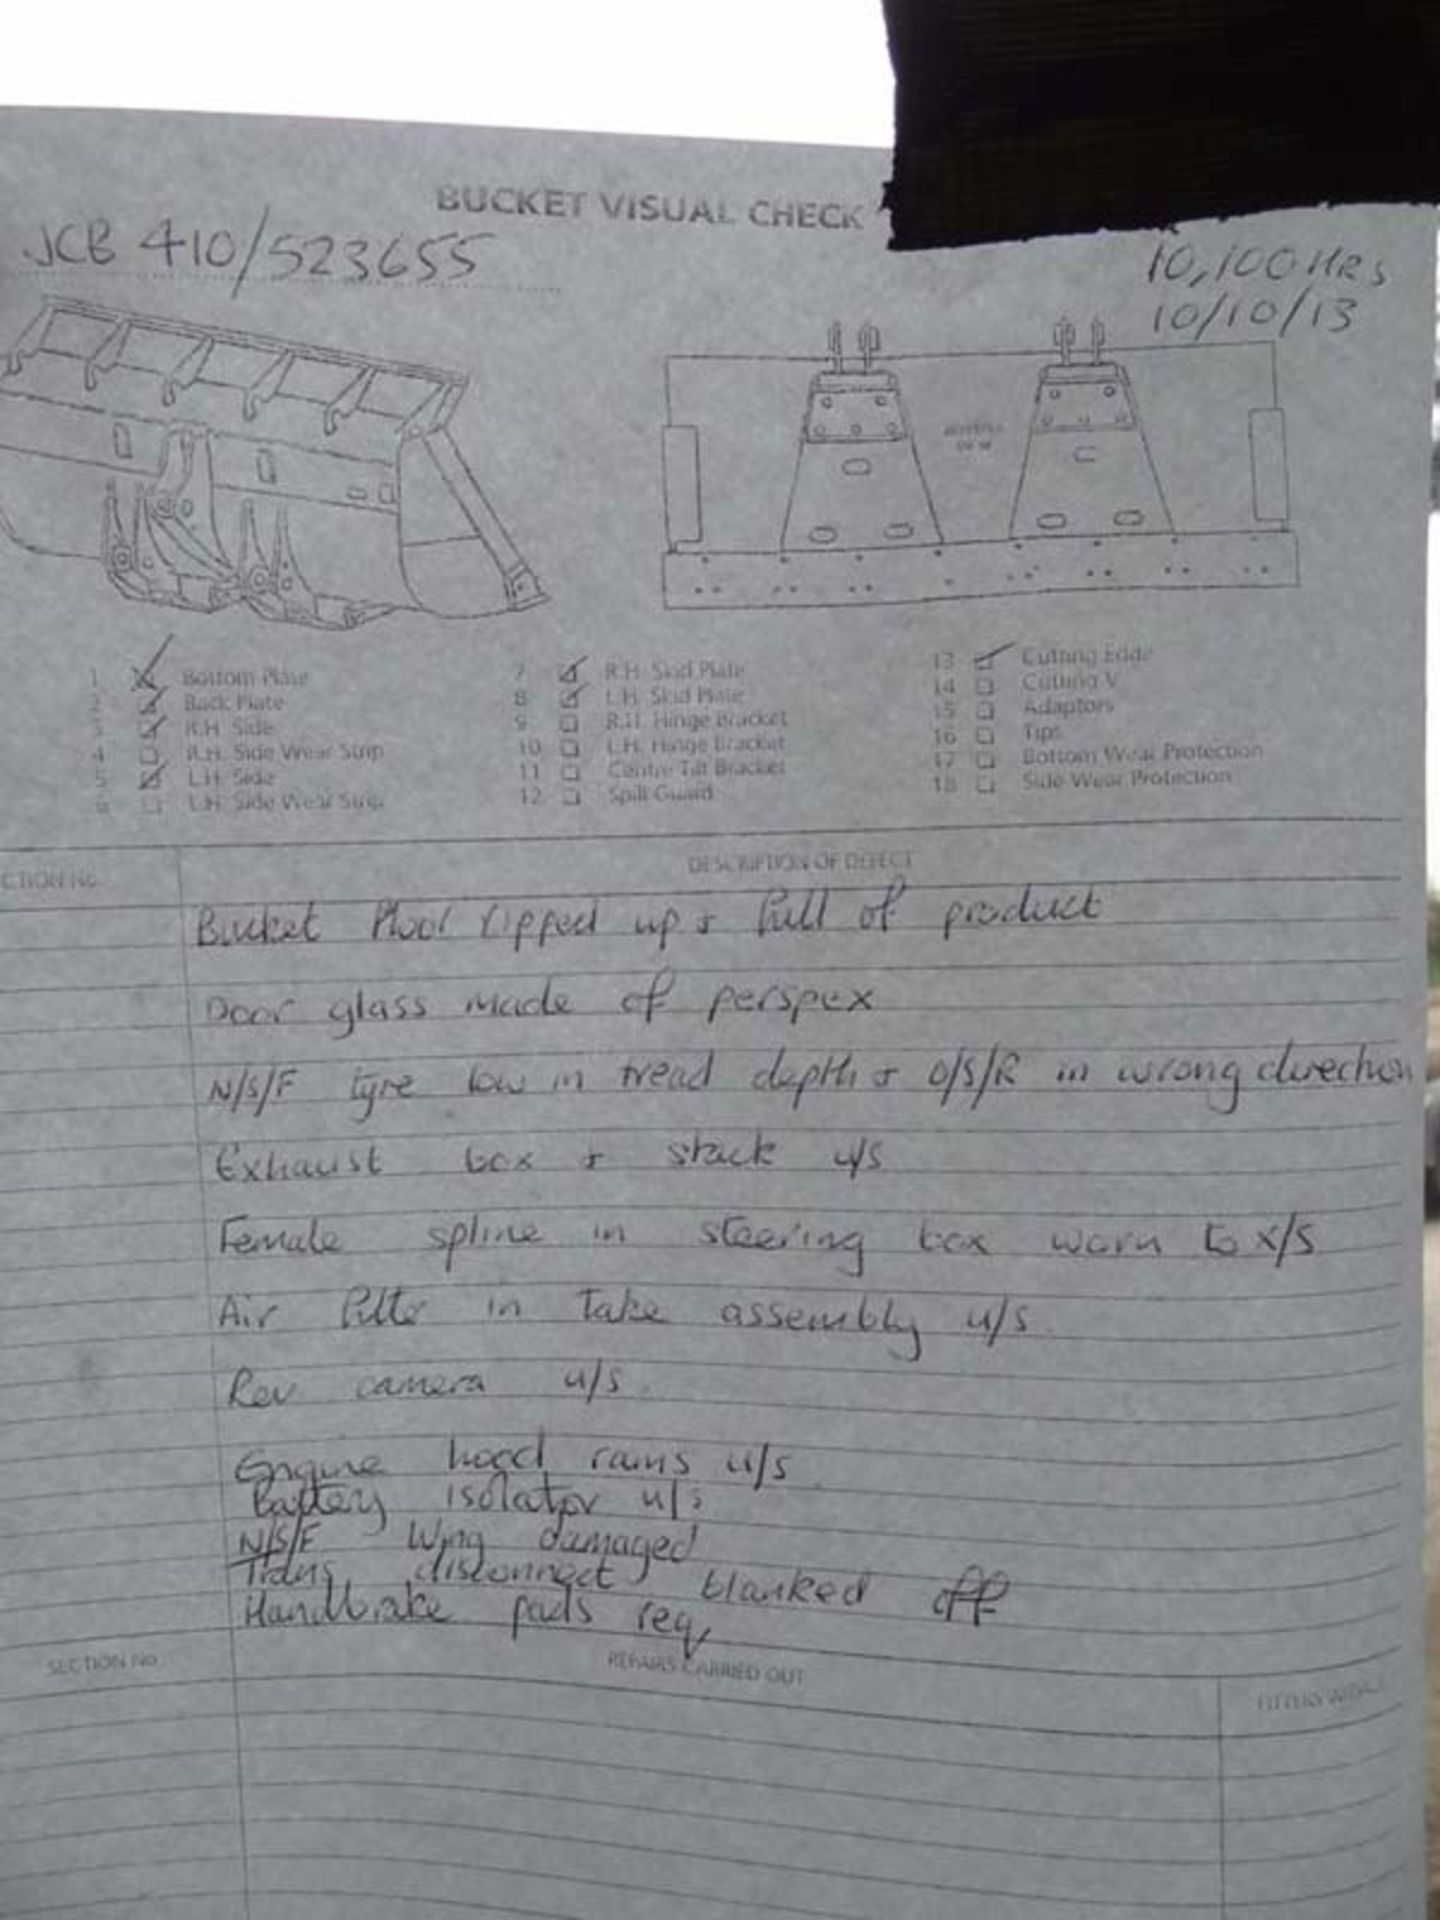 BUCKET VISUAL CHECK
JCB 410/523655
10,100 HRS
10/10/13
REVERSE VIEW
1 Bottom Plate
2 Back Plate
3 R.H. Side
4 R.H. Side Wear Strip
5 L.H. Side
6 L.H. Side Wear Strip
7 R.H. Skid Plate
8 L.H. Skid Plate
9 R.H. Hinge Bracket
10 L.H. Hinge Bracket
11 Centre Tilt Bracket
12 Spill Guard
13 Cutting Edge
14 Cutting V
15 Adaptors
16 Tips
17 Bottom Wear Protection
18 Side Wear Protection
CTION No.
DESCRIPTION OF DEFECT
Bucket floor ripped up + full of product
Door glass made of perspex
N/S/F tyre low in tread depth + O/S/R in wrong direction
Exhaust box + stack u/s
Female spline in steering box worn to x/s
Air filter in take assembly u/s
Rev camera u/s.
Engine hood rams u/s
Battery isolator u/s
N/S/F Wing damaged
Trans disconnect blanked off
Handbrake pads req
SECTION No.
REPAIRS CARRIED OUT
FITTERS